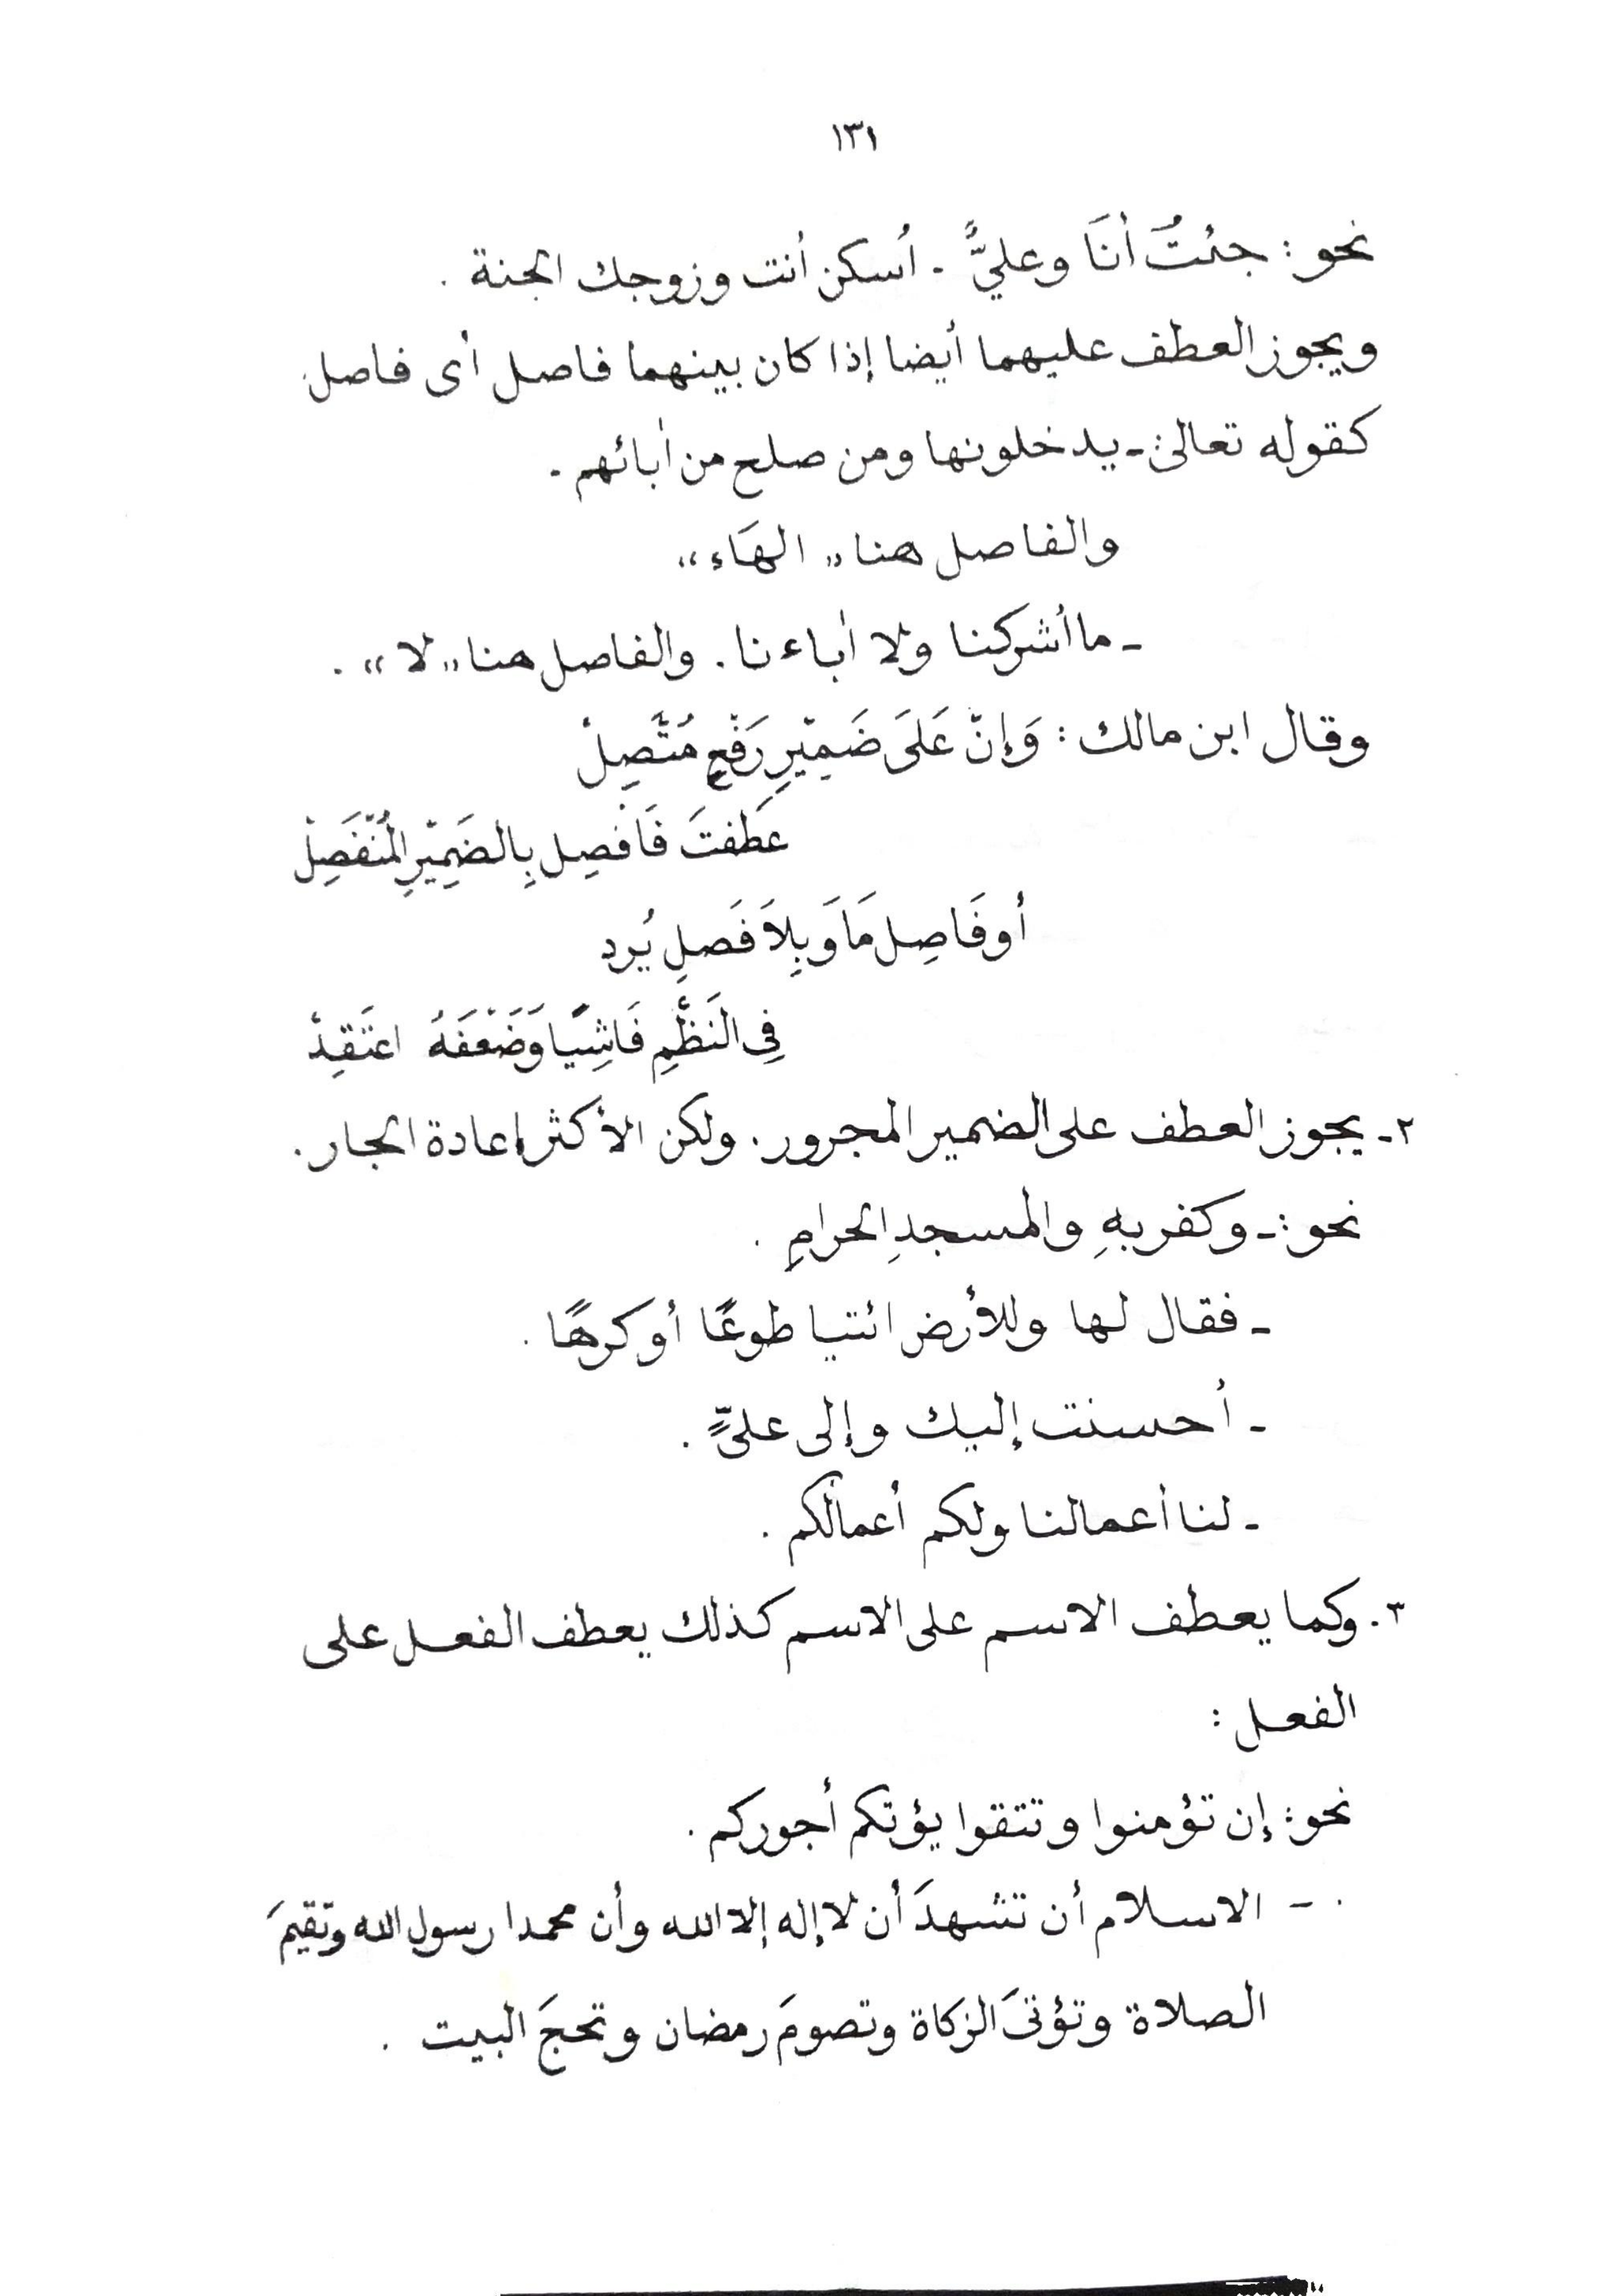 ١٣١
نحو : جئتُ أنَا وعليٌّ - أسكن أنت وزوجك الجنة .
ويجوز العطف عليهما أيضا إذا كان بينهما فاصل أى فاصل
كقوله تعالى :- يدخلونها ومن صلح من أبائهم -
والفاصل هنا ,, الهَاء ،،
- ما أشركنا ولا أباءنا . والفاصل هنا ,, لا ،، .
وقال ابن مالك : وَإنْ عَلَىَ ضَمِيْرِ رَفْعٍ مُتَّصِلْ
عَطَفتَ فَافْصِل بِالضَمِيْرِ المُنْفَصِلْ
أو فَاصِلٍ مَا وَبِلاَ فَصلٍ يُرد
فِى النَظْمِ فَاشِيًا وَضَعْفَهُ اعتَقِدْ
٢- يجوز العطف على الضمير المجرور . ولكن الأكثر إعادة الجار .
نحو :- وكفر بهِ والمسجدِ الحرامِ .
- فقال لها وللأرض ائتيا طوعًا أو كرهًا .
- أحسنت إليك وإلى علىٍّ .
- لنا أعمالنا ولكم أعمالكم .
٣. وكما يعطف الاسم على الاسم كذلك يعطف الفعل على
الفعل :
نحو: إن تؤمنوا وتتقوا يؤتكم أجوركم .
- الاسلام أن تشهدَ أن لا إله إلا الله وأن محمدا رسول الله وتقيمَ
الصلاة وتؤتىَ الزكاة وتصومَ رمضان وتحجَ البيت .